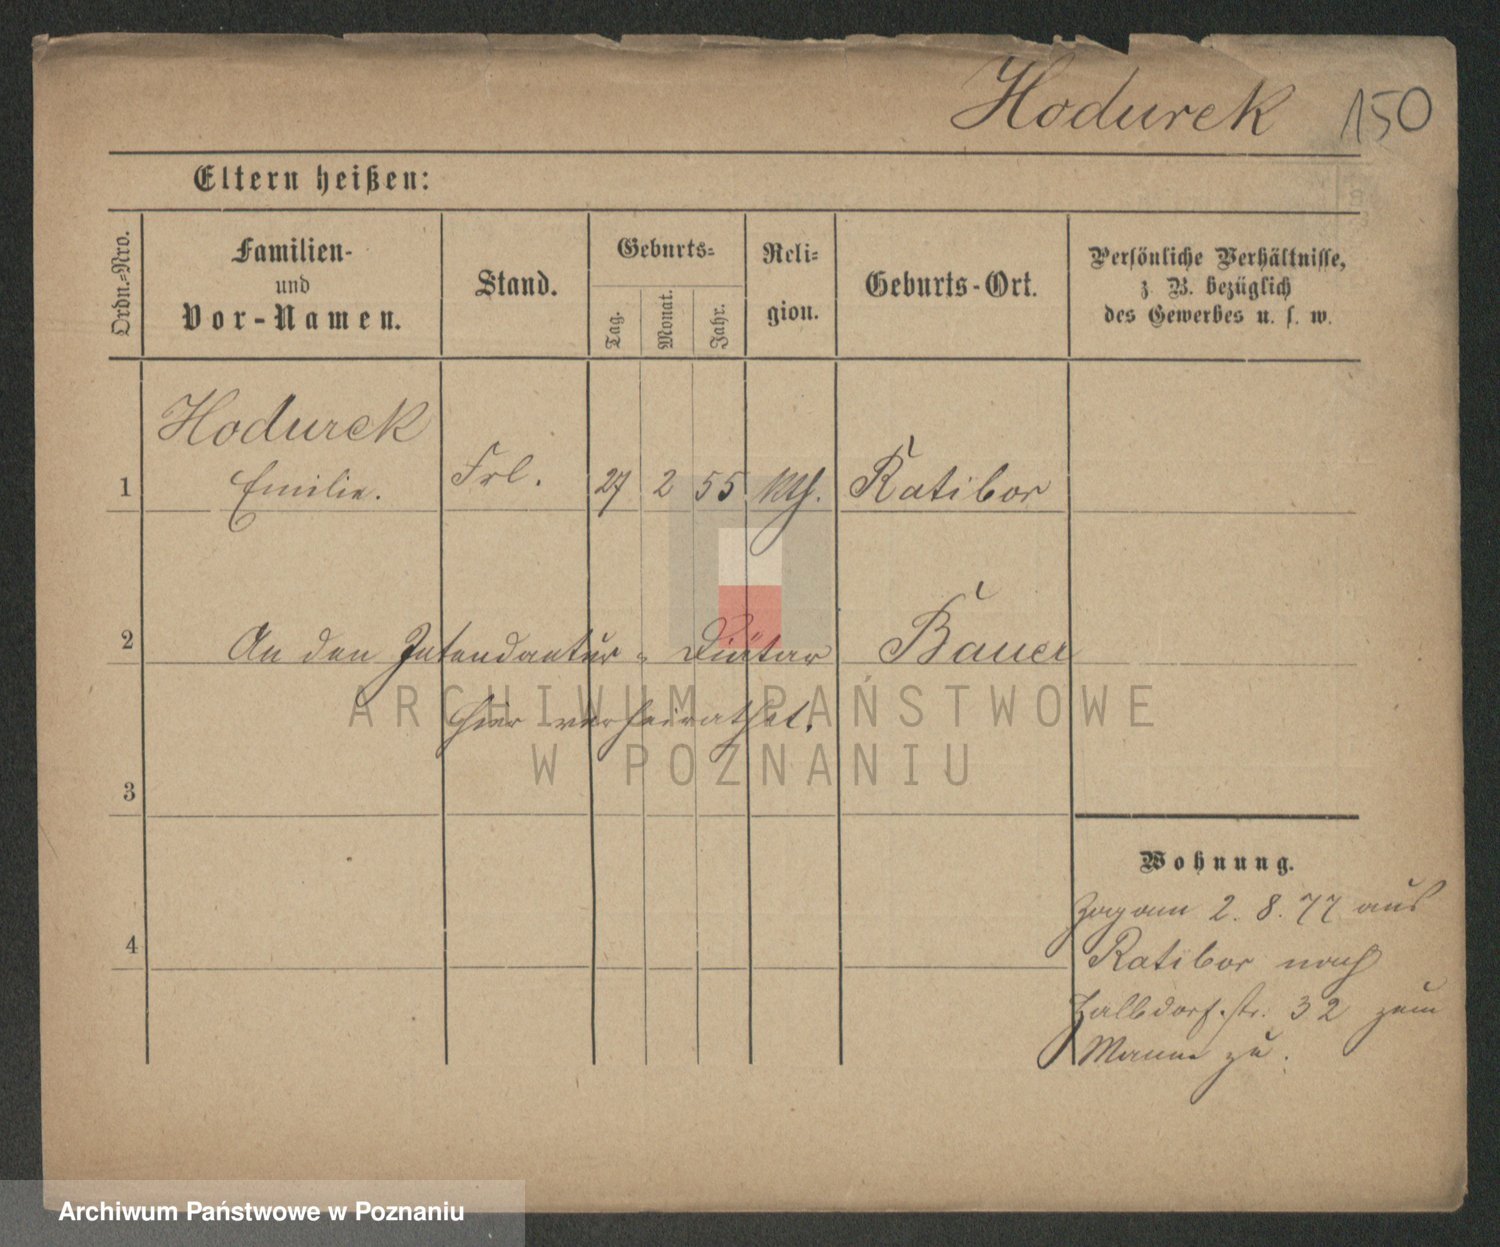 Hodurek 150
Eltern heißen:
Ordn.=Nro.
Familien-
und
Vor-Namen.
Stand.
Geburts=
Tag.
Monat.
Jahr.
Reli=
gion.
Geburts-Ort.
Persönliche Verhältnisse,
z. B. bezüglich
des Gewerbes u. s. w.
Hodurek
1 Emilie. Frl. 27 2 55 kth. Ratibor
2 An den Intendantur- Diätar Bauer
hier verheirathet.
ARCHIWUM PAŃSTWOWE
W POZNANIU
3
Wohnung.
Zog am 2. 8. 77 aus
4 Ratibor nach
Halbdorf.str. 32 zum
Manne zu.
Archiwum Państwowe w Poznaniu